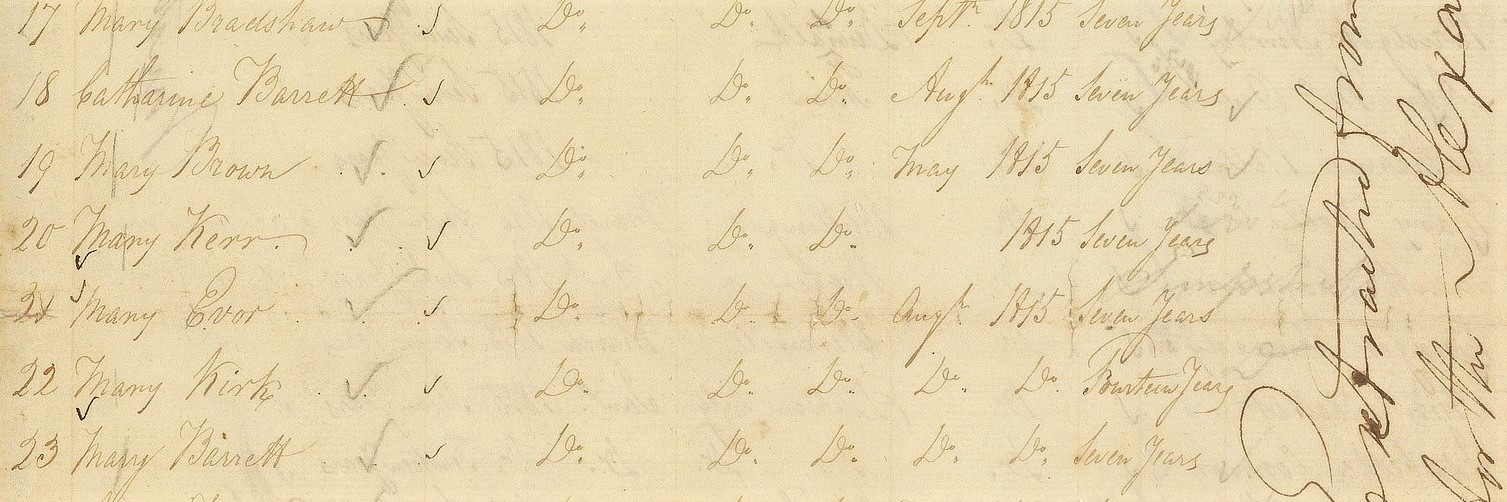 17 Mary Bradshaw Do. Do. Do. Septr. 1815 Seven Years
18 Catharine Barrett Do. Do. Do. Augt. 1815 Seven Years
19 Mary Brown Do. Do. Do. May 1815 Seven Years
20 Mary Kerr Do. Do. Do. 1815 Seven Years
21 Mary Evor Do. Do. Do. Augt. 1815 Seven Years
22 Mary Kirk Do. Do. Do. Do. Do. Fourteen Years
23 Mary Barrett Do. Do. Do. Do. Do. Seven Years
from
the Alexa